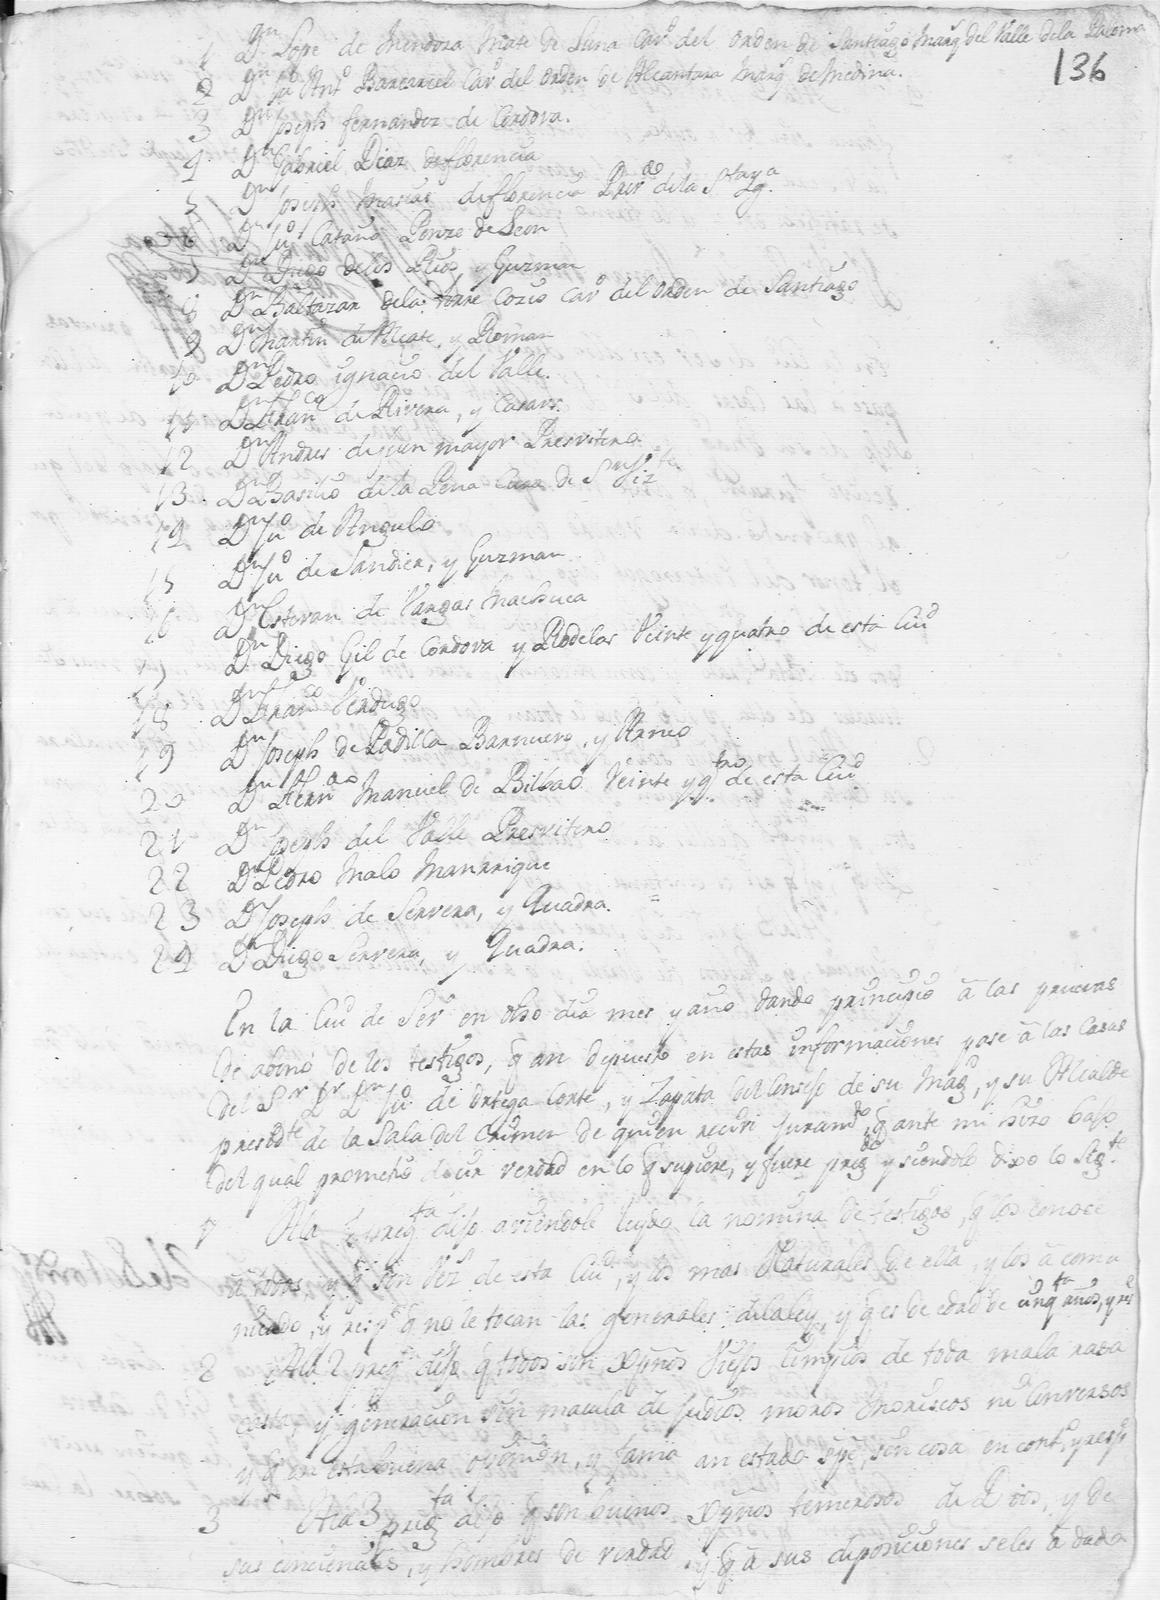 136
1 Dn Lope de Mendoza Mate de Luna Cavo del orden de Santiago Marq del Valle dela Paloma
2 Dn Ju Anto Barcarcel Cavo del orden de Alcantara Marq de Medina.
3 Dn Joseph fernandez de Cordova.
4 Dn Gabriel Diaz de florencia
5 Dn Joseph Matias de florencia Presvro dela Sta yga.
6 Dn Juo Cataño Ponze de Leon
7 Dn Diego delos Rios, y Guzman
8 Dn Baltazar dela torre Cozio Cavo del orden de Santiago
9 Dn Martin de Alcate, y Roman
10 Dn Pedro ignacio del Valle.
11 Dn Franco de Rivera, y Casaus.
12 Dn Andres de mayor Presvitero
13 Dn Basilio dela Pena Cura de Sn Vizte
14 Dn Juo de Angulo
15 Dn Juo de Sandier, y Guzman
16 Dn Estevan de Vargas Machuca
17 Dn Diego Gil de Cordova y Rodelas Veinte y quatro de esta Ciud
18 Dn Franco Verdugo
19 Dn Joseph de Padilla Barnuevo, y
20 Dn Fernando Manuel de Bilbao Veinte y qtro de esta Ciud
21 Dn Joseph del Valle Presvitero
22 Dn Pedro Malo Manrrique
23 Dn Joseph de Servera, y Quadra.
24 Dn Diego Servera, y Quadra.
En la Ciu de Seva en dho dia mes y año dando principio â las pruevas
de abono de los testigos, q an depuesto en estas informaciones pase â las Casas
del Sr Dr Dn Juo de Ortega Conte, y Zapata del Consejo de su Magd, y su Alcalde
presidte de la Sala del Crimen de quien recivi Juramto, q ante mi hizo bajo
del qual prometio decir verdad en lo q supiere, y fuere pregdo y siendolo dixo lo sigte
1 Ala 1 pregta dijo aviendole leydo la nomina de testigos, q los conoce
â todos, y q son Vezs de esta Ciud, y los mas Naturales de ella, y los â comu
nicado, y q no le tocan las generales dela ley, y q es de edad de cinqta años, y
2 Ala 2 pregta dijo q todos son Xpnos Viejos limpios de toda mala rasa
casta, y generacion sin macula de Judios moros Moriscos ni Conversos
y q en esta buena opinion, y fama an estado spre, sin cosa en contro, y
3 Ala 3 pregta dijo q son buenos Xpnos temerosos de Dios, y de
sus conciencias, y hombres de verdad y q â sus diposiciones seles â dado